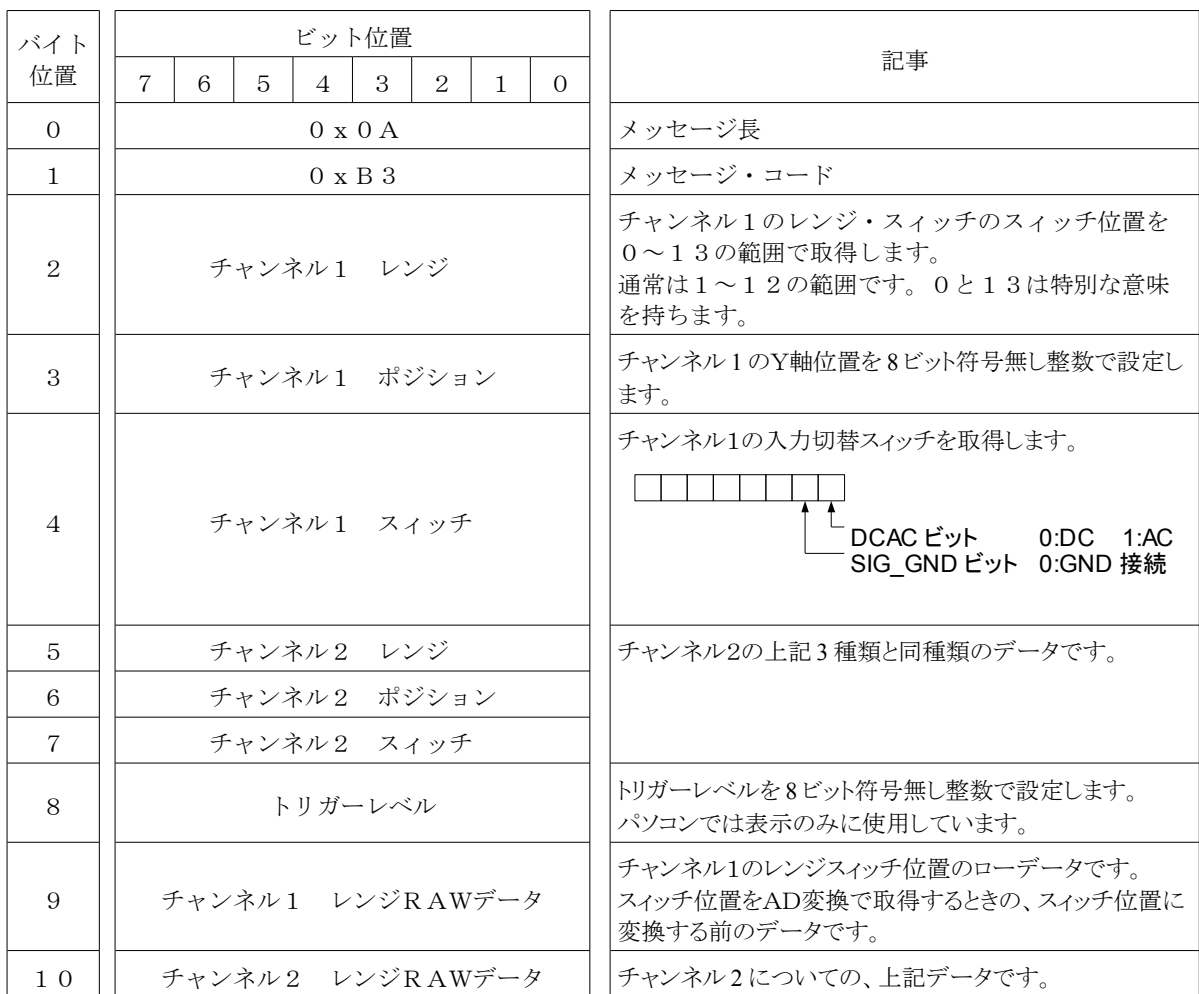 バイト
位置
ビット位置
記事
７ ６ ５ ４ ３ ２ １ ０
０
０ｘ０Ａ
メッセージ長
１
０ｘＢ３
メッセージ・コード
２
チャンネル１　レンジ
チャンネル１のレンジ・スィッチのスィッチ位置を
０～１３の範囲で取得します。
通常は１～１２の範囲です。０と１３は特別な意味
を持ちます。
３
チャンネル１　ポジション
チャンネル1のY軸位置を8ビット符号無し整数で設定し
ます。
４
チャンネル１　スィッチ
チャンネル1の入力切替スィッチを取得します。
DCAC ビット 0:DC 1:AC
SIG_GND ビット 0:GND 接続
５
チャンネル２　レンジ
チャンネル2の上記3種類と同種類のデータです。
６
チャンネル２　ポジション
７
チャンネル２　スィッチ
８
トリガーレベル
トリガーレベルを8ビット符号無し整数で設定します。
パソコンでは表示のみに使用しています。
９
チャンネル１　レンジＲＡＷデータ
チャンネル1のレンジスィッチ位置のローデータです。
スィッチ位置をAD変換で取得するときの、スィッチ位置に
変換する前のデータです。
１０
チャンネル２　レンジＲＡＷデータ
チャンネル2についての、上記データです。